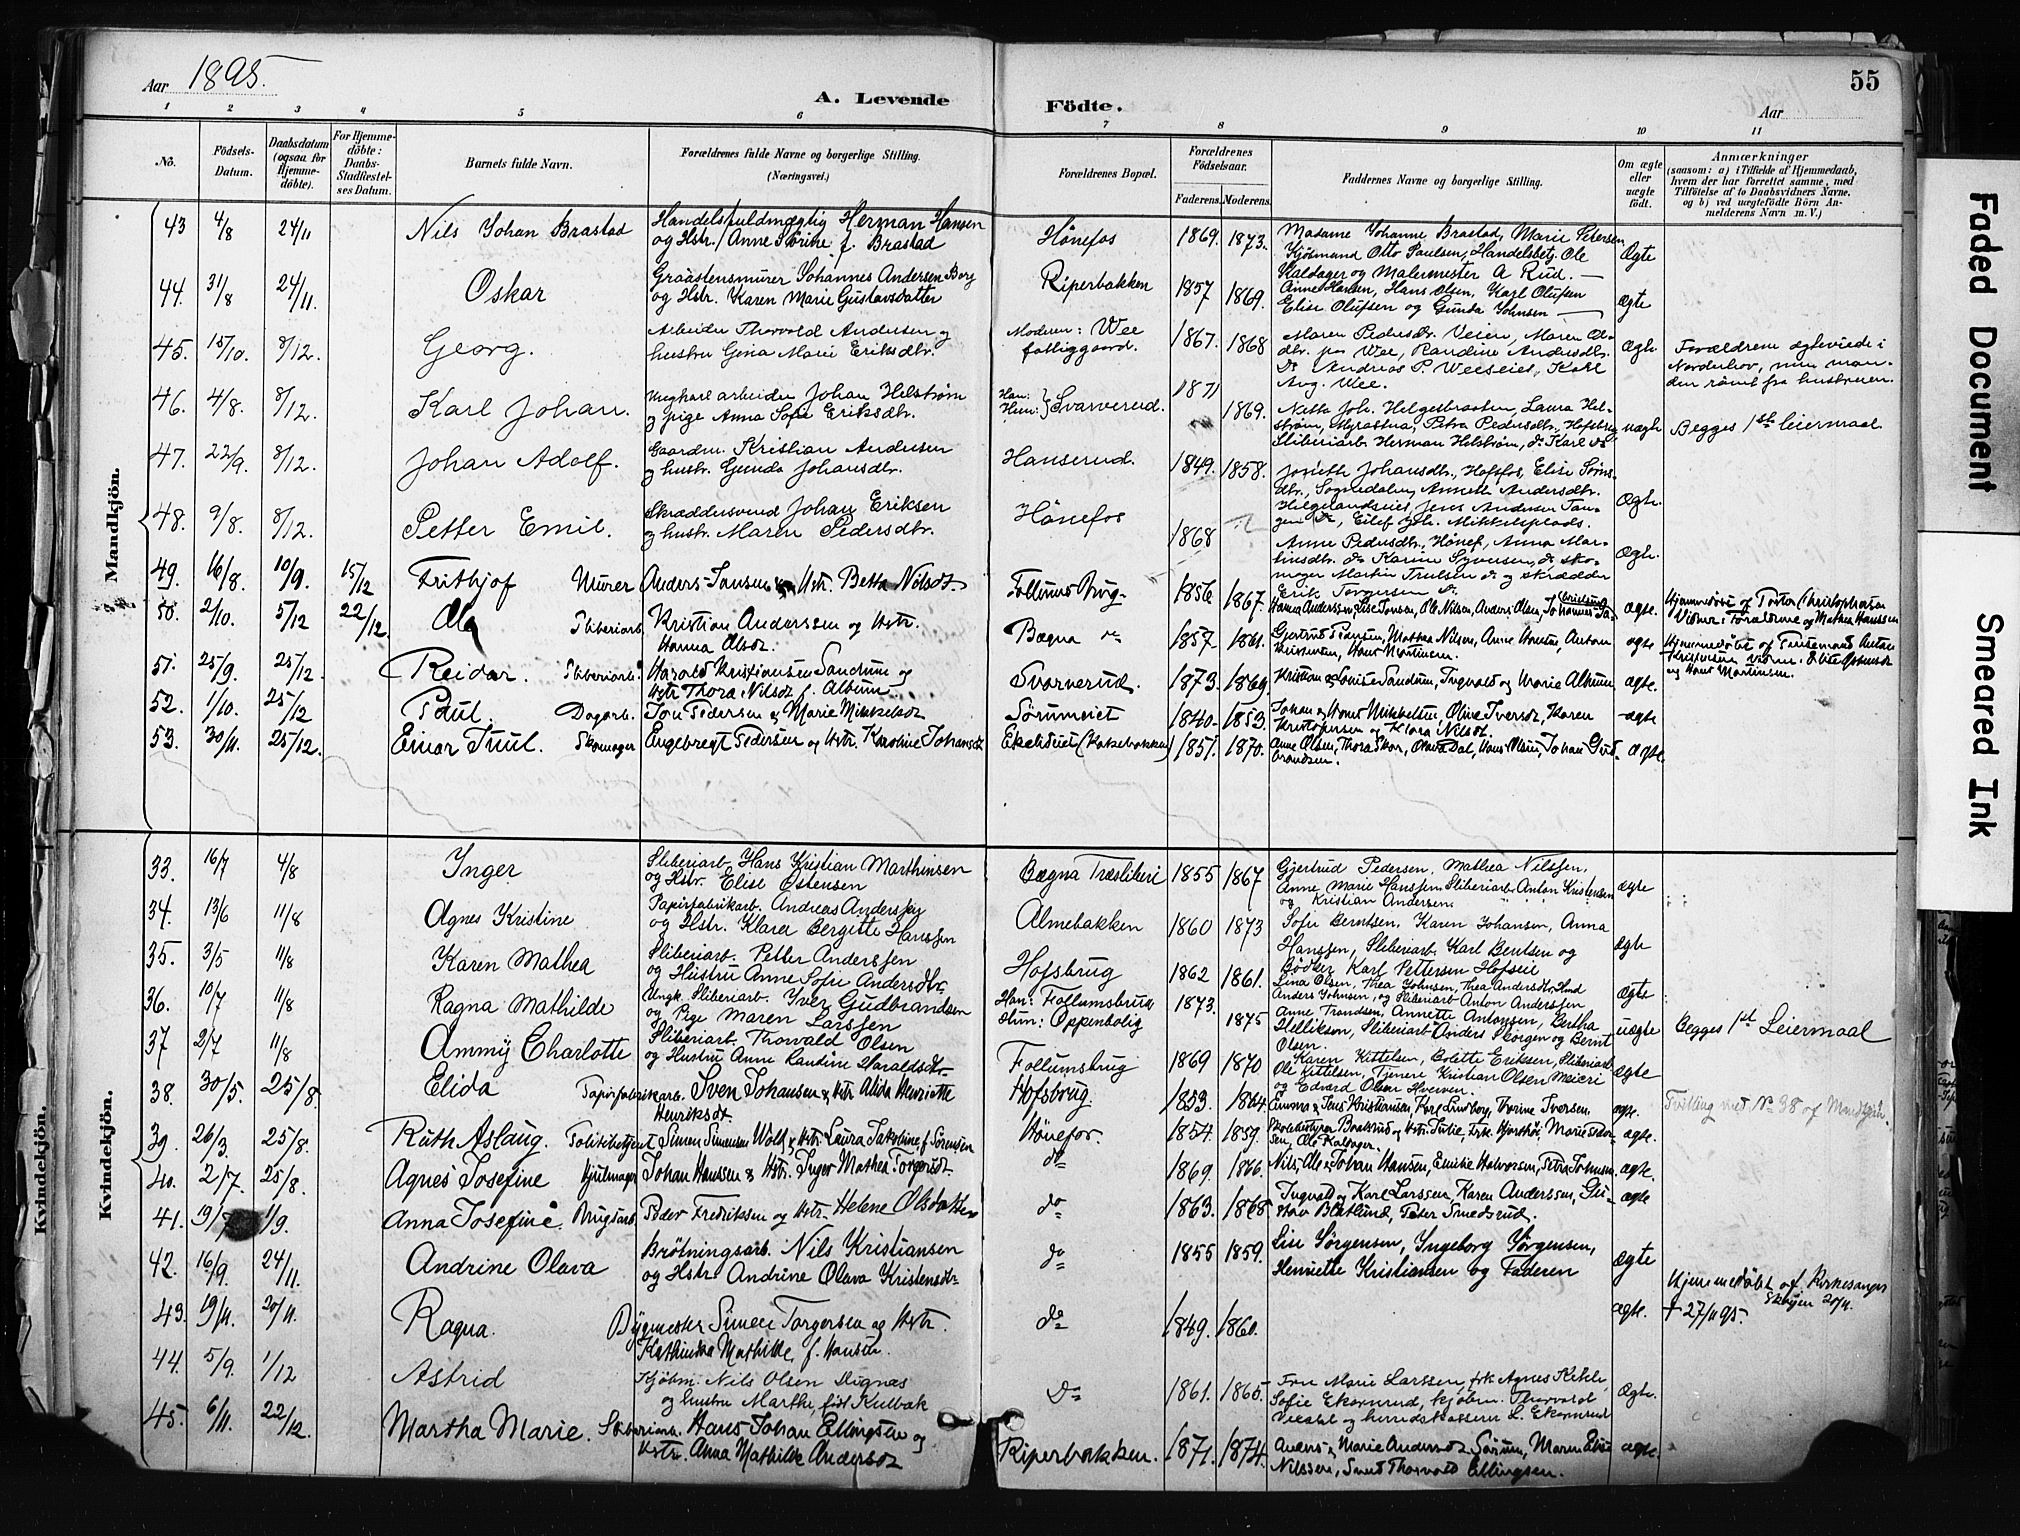 Aar 1895.
A. Levende Födte.
Aar
55
1 2 3 4 5 6 7 8 9 10 11
Nö.
Födsels-Datum.
Daabsdatum (ogsaa for Hjemme-döbte).
For Hjemme-döbte: Daabs-Stadfæstel-ses Datum.
Barnets fulde Navn.
Forældrenes fulde Navne og borgerlige Stilling. (Næringsvei.)
Forældrenes Bopæl.
Forældrenes Födselsaar.
Faderens. Moderens.
Faddernes Navne og borgerlige Stilling.
Om ægte eller uægte födt.
Anmærkninger
(saasom: a) i Tilfælde af Hjemmedaab, hvem der har forrettet samme, med Tilföielse af to Daabsvidners Navne. og b) ved uægtefödte Börn An-melderens Navn m. V.)
Mandkjön.
43 4/8 24/11 Nils Johan Brastad Handelsfuldmægtig Herman Hansen og Hstr. Anne Sörine f. Brastad Hönefos 1869. 1873. Madame Johanne Brastad, Marie Petersen Kjöbmand Otto Paulsen, Handelsbetj. Ole Kaldager og Malermester A Rud. Ægte
44. 31/8 24/11. Oskar Graastensmurer Johannes Andersen Borg og Hstr. Karen Marie Gustavsdatter Riperbakken 1857 1869. Anne Hansen, Hans Olsen, Karl Olufsen Elise Olufsen og Gunda Johnsen ægte
45. 15/10. 8/12. Georg. Arbeider Thorvald Andersen og hustru Gina Marie Eriksdtr. Moderen: Wee fattiggaard. 1867. 1868 Maren Pedersdtr. Veien, Maren Ol-dtr. paa Wee, Randine Andersdtr. Do Andreas P. Weeseiet, Karl Aug. Wee. Ægte Forældrene ægteviede i Norderhov, men man-den römt fra hustruen.
46. 4/8. 8/12. Karl Johan. Ungkarl arbeider Johan Helström og pige Anna Sofie Eriksdtr. Han: Hun: } Svarverud. 1871 1869. Netta Joh. Helgesbraaten, Laura Hel-ström, Myrastua, Petra Pedersdtr., Hofsbrug Sliberiarb. Herman Helström, do Karl do uægte Begges 1ste leiermaal.
47. 22/9. 8/12. Johan Adolf. Gaardm. Kristian Andersen og hustr. Gunda Johansdtr. Hanserud. 1849. 1858. Josette Johansdtr., Hofsfos, Elise Sörns-dtr., Sognedalen, Annette Andersdtr. Helgelandseiet, Jens Andersen Tan-gen do, Eilef Joh. Mikkelsplads. Ægte.
48. 9/8. 8/12. Petter Emil. Skræddersvend Johan Eriksen og hustr. Maren Pedersdtr. Hönefos 1868 Anne Pedersdtr., Hönef., Anna Mar-tinsdtr. do Karine Syversen, do sko-mager Martin Trulsen do og skrædder Erik Torgersen do. Ægte.
49. 16/8. 10/9. 15/12 Frithjof Murer Anders Jonsen og Hstr. Betta Nilsdt. Follums Brug 1856 1867. Hanna Anderssen, Lise Jonsen, Ole Nilsen, Anders Olsen, Johannes ægte. Hjemmedöbt af Pastor Christophersen Vidner: Forældrene og Mathea Hanssen
50. 2/10. 5/12 22/12. Ola Sliberiarb. Kristian Anderssen og Hstr. Hanna Olsdt. Bægna do 1857. 1861. Gjertrud Pedersen, Mathea Nilsen, Anne Hansen, Anton Kristensen, Hans Martinsen. ægte Hjemmedöbt af Anton Kristensen vidner: og Hans Martinsen.
51. 25/9. 25/12. Reidar. Sliberiarb. Harald Kristiansen Sandum og Hstr Thora Nilsdt f. Album Svarverud. 1873. 1869. Kristian og Lovise Sandum, Ingvald og Marie Album ægte.
52. 1/10. 25/12 Paul. Dagarb. Jon Pedersen og Marie Mikkelsdt Sörumeiet 1840. 1853. Johan og Hans Mikkelsen, Oline Iversdt, Karen Kristophersen og Klara Nilsdt. ægte
53. 30/11. 25/12. Einar Juul. Skomager Engebregt Pedersen og Hstr. Karoline Johansdt Ekeliduet (Kokebakken) 1851. 1870. Anne Olsen, Thora Skar, Olava Dal, Hans Olsen, Johan Gud-brandsen. ægte.
Kvindekjön.
Kvindekjön.
33. 16/7 4/8 Inger Sliberiarb. Hans Kristian Marthinsen og Hstr. Elise Östensen Bægna Træsliberi 1855 1867 Gjertrud Pedersen, Mathea Nilssen, Anne Marie Hanssen Sliberiarb. Anton Kristensen og Kristian Andersen. ægte
34. 13/6 11/8 Agnes Kristine Papirfabrikarb. Andreas Anderssen og Hstr. Klara Bergitte Hanssen Almebakken 1860 1873 Sofie Berntsen, Karen Johansen, Anna Hanssen, Sliberiarb. Karl Berntsen og Bödker Karl Pettersen Hofseie ægte
35. 3/5 11/8 Karen Mathea Sliberiarb. Petter Anderssen og Hustru Anne Sofie Andersdtr. Hofsbrug 1862 1861. Lina Olsen, Thea Johnsen, Thea Andersdtr. Hund Anders Johnsen, og Sliberiarb Anton Anderssen ægte
36. 10/7 11/8 Ragna Mathilde Ungk. Sliberiarb. Iver Gudbrandsen og Pige Maren Larssen Han: Follumsbrug Hun: Oppenbolig 1873. 1875 Anne Trondsen, Annette Antonsen, Bertha Helliksen, Sliberiarb. Anders Skörgen og Bernt Olsen. uægte Begges 1st Leiermaal
37 2/7 11/8 Ammy Charlotte Sliberiarb. Thorvald Olsen og Hustru Anne Randine Haraldsdtr. Follumsbrug 1869 1870 Karen Kittelsen, Bolette Eriksen, Sliberiarb. Ole Kittelsen, Tjener Kristian Olsen Meieri og Edvard Olsen Hverven. ægte
38. 30/5. 25/8. Elida Papirfabrikarb. Sven Johansen & Hstr Alida Henriette Henriksdt Hofsbrug. 1853. 1864. Emma & Jens Kristiansen, Karl Lindborg, Thorine Iversen. ægte. Tvilling med No 38 af Mandkjön.
39. 26/3. 25/8. Ruth Aslaug. Politibetjent Simen Simensen Wold & Hstr. Laura Jakobine f. Sörensen Hönefos. 1854. 1859. Skolebestyrer Braakrud og Hstr. Julie, Frk. Marie ole Kaldager. ægte.
40. 2/7. 25/8. Agnes Josefine Hjulmager Johan Hanssen & Hstr. Inger Mathea Torgersdt do 1869. 1866. Nils, Ole & Johan Hansen, Emilie Halvorsen, Petra Johnsen. ægte.
41. 19/ 1/9. Anna Josefine. Brugsarb. Peder Fredriksen og Hstr. Helene Olsdatter do 1863. 1865. Ingvald og Karl Larssen, Karen Anderssen, Gu-stav Blixlund, Peter Smedsrud. ægte
42. 16/9. 24/11. Andrine Olava Brötningsarb. Nils Kristiansen og Hstr. Andrine Olava Kristensdtr. do 1855 1859. Lise Sörgensen, Ingeborg Sörgensen, Henriette Kristiansen og Faderen ægte
43. 19/11. 20/11. Ragna. Bygmester Simen Torgersen og Hstr. Kathinka Mathilde, f. Hansen. do 1849. 1860. ægte. Hjemmedöbt af Kirkesanger Sköyen 20/11. + 27/11 95.
44. 5/9. 1/12 Astrid Kjöbm. Nils Olsen Mignæs og hustru Marthe, föd Kulbak do 1861. 1865. Fru Marie Larssen, frk Agnes Kihle, Sofie Ekornrud, kjöbm. Thorvald og herredskasserer L. Ekornrud Ægte.
45. 6/11. 22/12. Martha Marie. Sliberiarb. Hans Johan Ellingsen og Hstr. Anna Mathilde Andersdt Riperbakken. 1871. 1874. Anders & Marie Andersdt Sörum, Maren Elise Nilssen, Smed Thorvald Ellingsen. ægte.
Faded Document
Smeared Ink